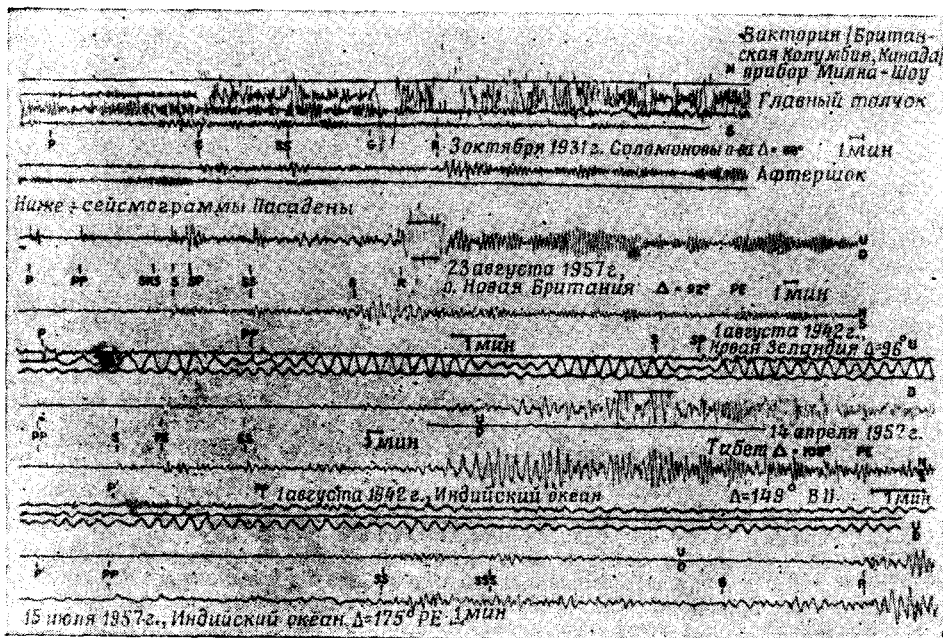 Виктория (Британ-
ская Колумбия, Канада)
прибор Милна-Шоу
Главный толчок
P S SS G R
3 октября 1931 г. Соломоновы о-ва Δ = 88° 1 мин
Афтершок
Ниже - сейсмограммы Пасадены
U
D
P PP SKS S SP SS G R
23 августа 1957 г,
о. Новая Британия Δ = 92° PE 1 мин
P PP 1 мин S SP
1 августа 1942 г.,
Новая Зеландия Δ=96°
PP S PS SS 3 мин
14 апреля 1957 г.
Тибет Δ = 108° PE
P' PP 1 августа 1942 г., Индийский океан Δ=149° В П. 1 мин
U
D
U
D
P' PP SS SSS G R
15 июля 1957 г., Индийский океан Δ=175° PE 1 мин